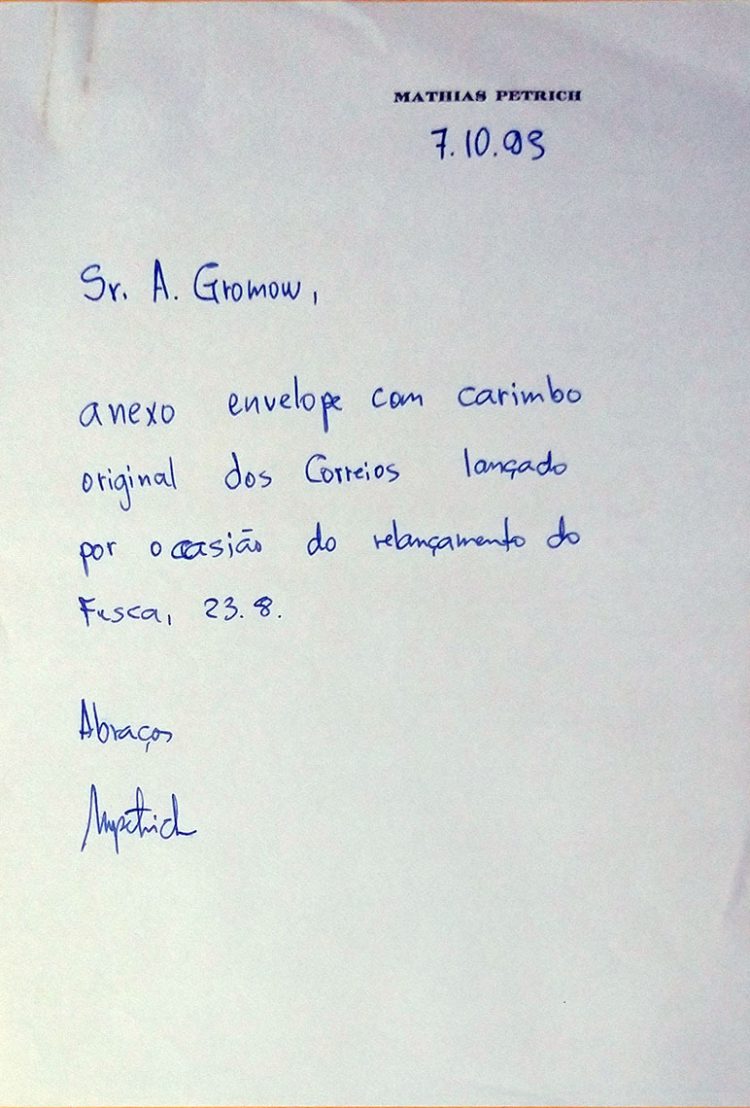 MATHIAS PETRICH
7.10.93
Sr. A. Gromow,
anexo envelope com carimbo
original dos Correios lançado
por occasião do relançamento do
Fusca, 23.8.
Abraços
Mpetrich